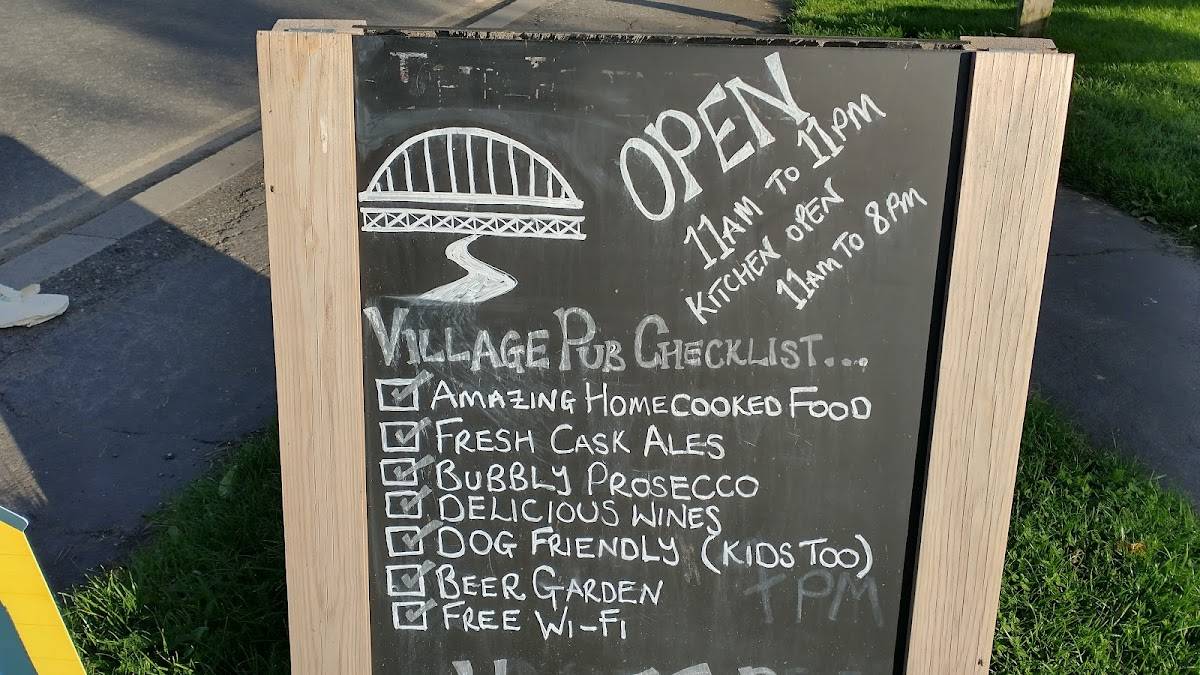 OPEN
11AM TO 11PM
KITCHEN OPEN
11AM TO 8PM
VILLAGE PUB CHECKLIST...
AMAZING HOMECOOKED FOOD
FRESH CASK ALES
BUBBLY PROSECCO
DELICIOUS WINES
DOG FRIENDLY (KIDS TOO)
BEER GARDEN
FREE WI-FI
7PM